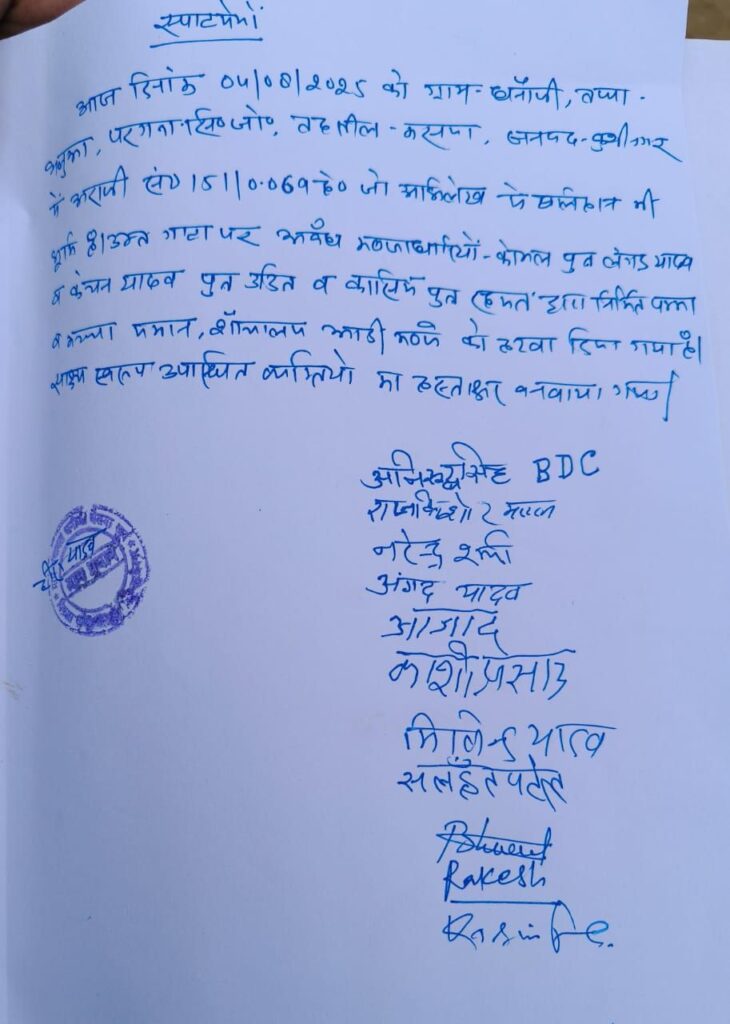 स्पाटमेमों
आज दिनांक 04/08/2025 को ग्राम- धनौजी, तप्पा-
परगना-सि०जो०, तहसील- कसया, जनपद-कुशीनगर
में अराजी सं० 151/0.069हे० जो अभिलेख में खलिहान की
भूमि है। उक्त गाटा पर अवैध कब्जाधारियों- कोमल पुत्र यादव
व कंचन यादव पुत्र उदित व कासिम पुत्र रहमत द्वारा निर्मित पक्का
व कच्चा मकान, शौचालय आदी कब्जे को हटवा दिया गया है।
साक्ष्य स्वरुप उपस्थित व्यक्तियो का हस्ताक्षर बनवाया गया।
अनिरूद्ध सिंह BDC
राजकिशोर
नरेन्द्र शर्मा
अंगद यादव
यादव
आजाद
काशी प्रसाद
यादव
पटेल
Rakesh